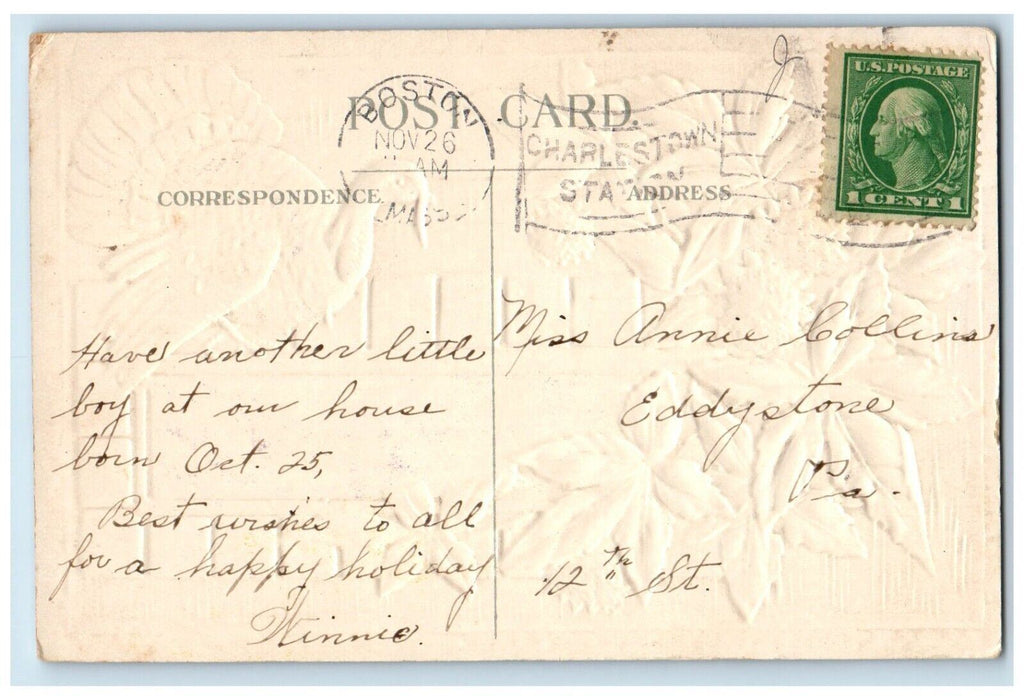 POST CARD.
BOSTON
NOV 26
AM
MASS
CHARLESTOWN
STATION
U.S. POSTAGE
1 CENT 1
CORRESPONDENCE
ADDRESS
Have another little
boy at our house
born Oct. 25,
Best wishes to all
for a happy holiday
Winnie.
Miss Annie Collins
Eddystone
Pa.
12th St.